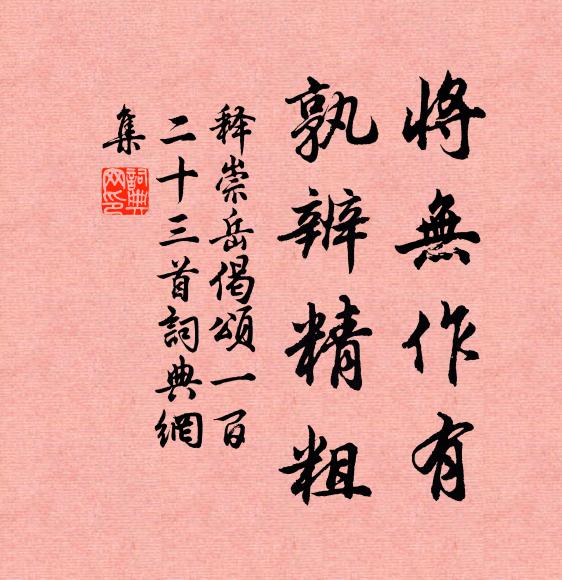 將無作有
孰辨精粗
釋崇岳偈頌一百
二十三首詞典網
集
詞典
網印